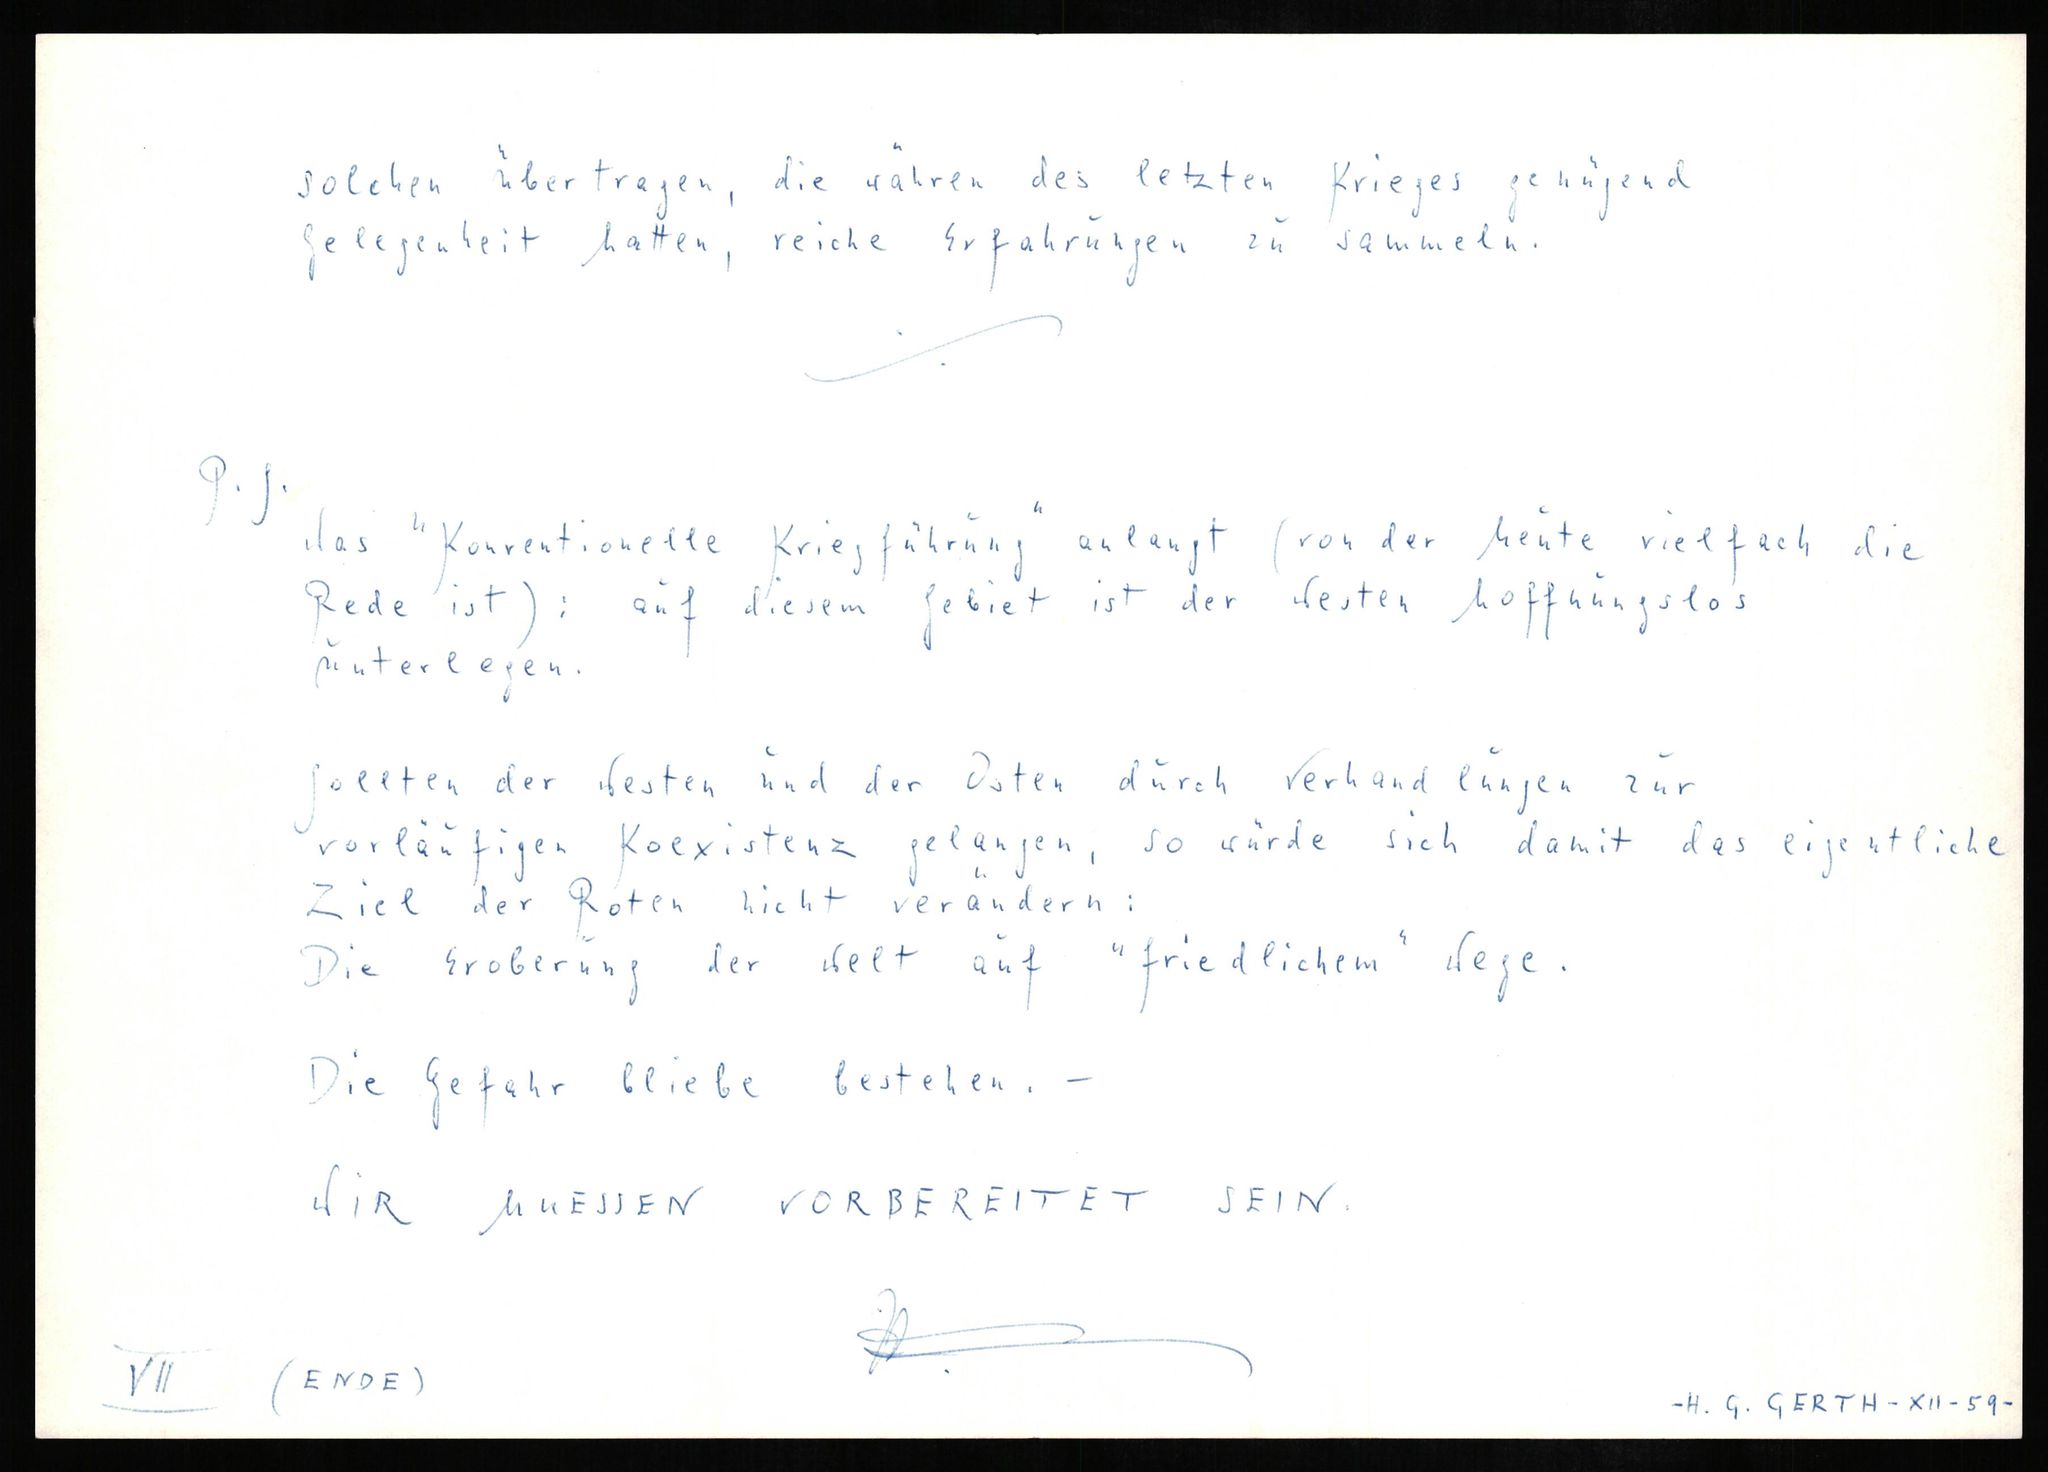 solchen übertragen, die währen des letzten Krieges genügend
Gelegenheit hatten, reiche Erfahrungen zu sammeln.
P.S.
Was "Konventionelle Kriegführung" anlangt (von der heute vielfach die
Rede ist): auf diesem Gebiet ist der Westen hoffnungslos
unterlegen.
Sollten der Westen und der Osten durch Verhandlungen zur
vorläufigen Koexistenz gelangen, so würde sich damit das eigentliche
Ziel der Roten nicht verändern:
Die Eroberung der Welt auf "friedlichem" Wege.
Die Gefahr bliebe bestehen. –
WIR MUESSEN VORBEREITET SEIN.
VII (ENDE)
-H. G. GERTH-XII-59-